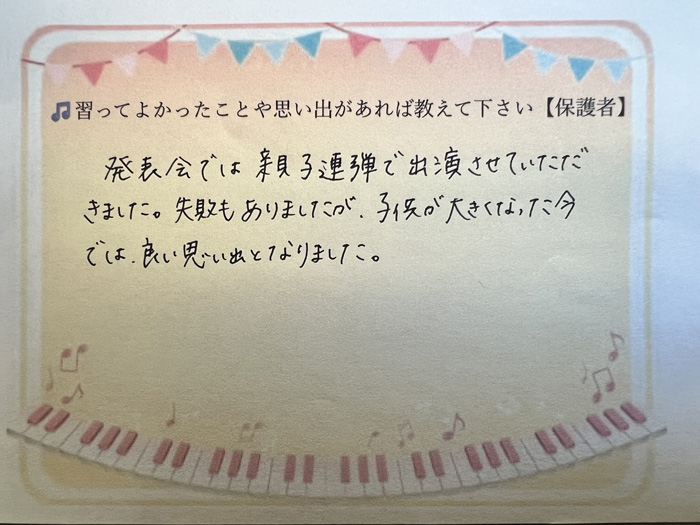 習ってよかったことや思い出があれば教えて下さい【保護者】
発表会では親子連弾で出演させていただ
きました。失敗もありましたが、子供が大きくなった今
では、良い思い出となりました。